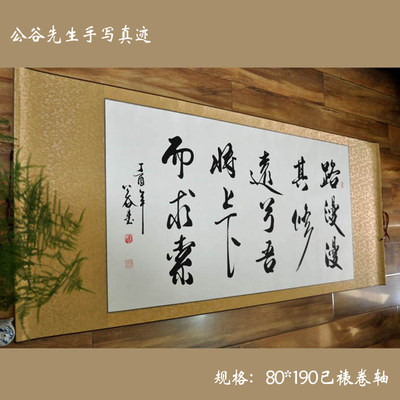 公谷先生手写真迹
路漫漫
其修
远兮吾
将上下
而求索
丁酉年
公谷书
规格：80*190已裱卷轴